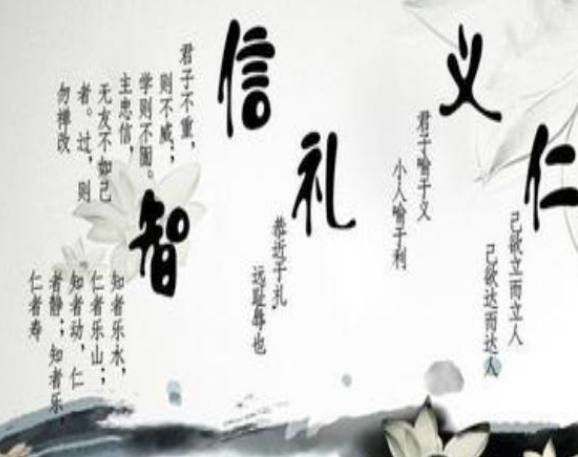 仁
己欲立而立人
己欲达而达人
义
君子喻于义
小人喻于利
礼
恭近于礼
远耻辱也
信
君子不重，
则不威；
学则不固。
主忠信，
无友不如己
者。过，则
勿惮改
智
知者乐水，
仁者乐山；
知者动，仁
者静；知者乐，
仁者寿